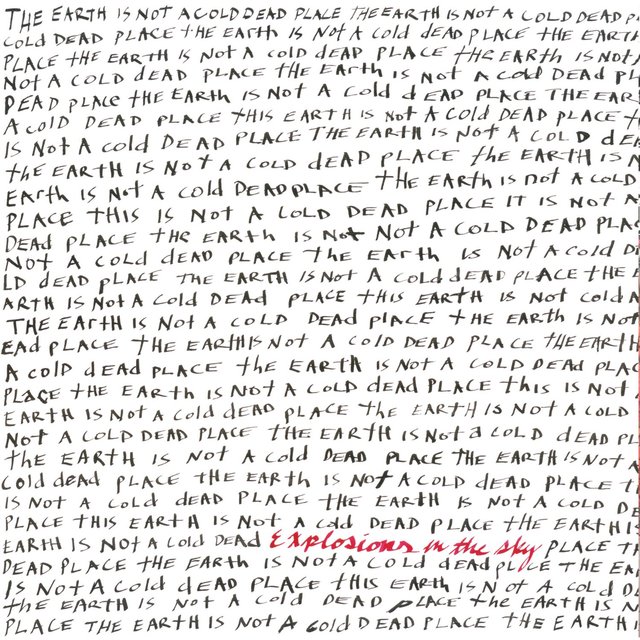 THE EARTH IS NOT A COLD DEAD PLACE THE EARTH IS NOT A COLD DEAD P
COLD DEAD PLACE THE EARTH IS NOT A COLD DEAD PLACE THE EARTH
PLACE THE EARTH IS NOT A COLD DEAD PLACE THE EARTH IS NOT A
NOT A COLD DEAD PLACE THE EARTH IS NOT A COLD DEAD PL
DEAD PLACE THE EARTH IS NOT A COLD DEAD PLACE THE EAR
A COLD DEAD PLACE THIS EARTH IS NOT A COLD DEAD PLACE T
IS NOT A COLD DEAD PLACE THE EARTH IS NOT A COLD DEA
THE EARTH IS NOT A COLD DEAD PLACE THE EARTH IS N
EARTH IS NOT A COLD DEAD PLACE THE EARTH IS NOT A COLD
PLACE THIS IS NOT A COLD DEAD PLACE IT IS NOT A
DEAD PLACE THE EARTH IS NOT NOT A COLD DEAD PLAC
NOT A COLD DEAD PLACE THE EARTH IS NOT A COLD D
LD DEAD PLACE THE EARTH IS NOT A COLD DEAD PLACE THE E
ARTH IS NOT A COLD DEAD PLACE THIS EARTH IS NOT COLD A
THE EARTH IS NOT A COLD DEAD PLACE THE EARTH IS NOT
EAD PLACE THE EARTH IS NOT A COLD DEAD PLACE THE EARTH
A COLD DEAD PLACE THE EARTH IS NOT A COLD DEAD PLAC
PLACE THE EARTH IS NOT A COLD DEAD PLACE THIS IS NOT A
EARTH IS NOT A COLD DEAD PLACE THE EARTH IS NOT A COLD
NOT A COLD DEAD PLACE THE EARTH IS NOT A COLD DEAD PL
THE EARTH IS NOT A COLD DEAD PLACE THE EARTH IS NOT A
COLD DEAD PLACE THE EARTH IS NOT A COLD DEAD PLACE T
IS NOT A COLD DEAD PLACE THE EARTH IS NOT A COLD DE
PLACE THIS EARTH IS NOT A COLD DEAD PLACE THE EARTH I
EARTH IS NOT A COLD DEAD Explosions in the sky PLACE TH
DEAD PLACE THE EARTH IS NOT A COLD DEAD PLACE THE EA
IS NOT A COLD DEAD PLACE THIS EARTH IS NOT A COLD D
THE EARTH IS NOT A COLD DEAD PLACE THE EARTH IS N
PLACE THE EARTH IS NOT A COLD DEAD PLACE THE EARTH I